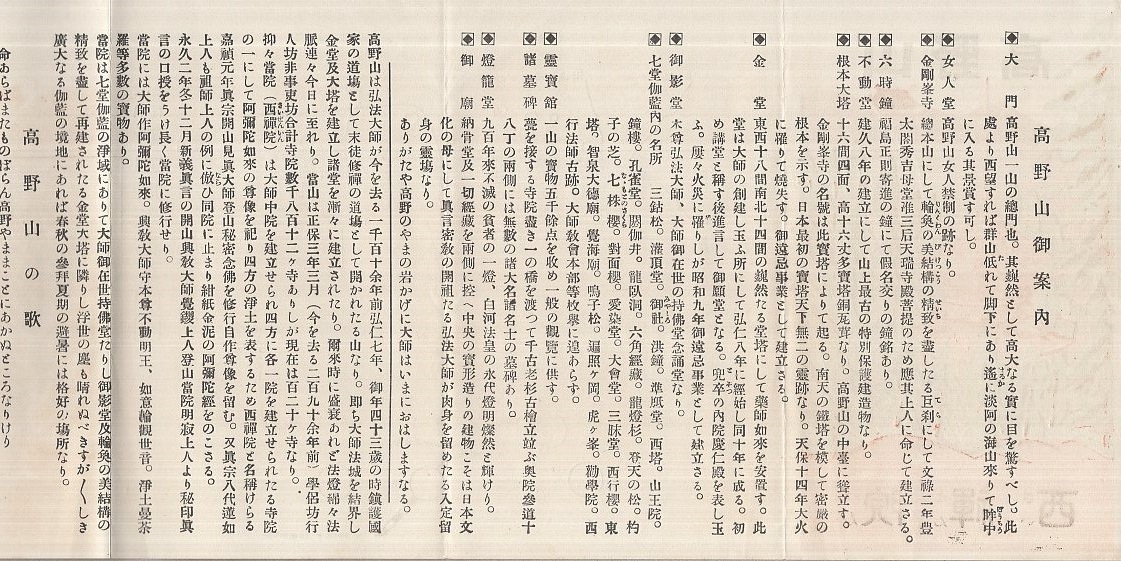 高野山御案內
大門 高野山一山の總門也。其巍然として高大なる實に目を驚すべし。此
處より西望すれば群山低れて脚下にあり遙に淡阿の海山來りて眸中
に入る其景賞す可し。
女人堂 高野山女人禁制の跡なり。
金剛峯寺 總本山にして輪奐の美結構の精致を盡したる巨刹にして文祿二年豊
太閤秀吉母堂准三后天瑞寺殿菩提のため應其上人に命じて建立さる。
六時鐘 福島正則寄進の鐘にて假名交りの鐘銘あり。
不動堂 建久八年の建立にして山上最古の特別保護建造物なり。
根本大塔 十六間四面、高十六丈多寶塔銅瓦葺なり。高野山の中臺に聳立す。
金剛峯寺の名號は此寶塔によりて起る。南天の鐵塔を模して密嚴の
根本を示す。日本最初の寶塔天下無二の靈跡なり。天保十四年大火
に罹りて燒失す。御遠忌事業として建立さる。
金堂 東西十八間南北十四間の巍然たる堂塔にして藥師如來を安置す。此
堂は大師の創建し玉ふ所にして弘仁八年に經始し同十年に成る。初
め講堂と稱す後進言して御願堂となる。兜卒の內院慶仁殿を表し玉
ふ。屢々火災に罹りしが昭和九年御遠忌事業として建立さる。
御影堂 本尊弘法大師、大師御在世の持佛堂念誦堂なり。
七堂伽藍內の名所 三鈷松。灌頂堂。御社。洪鐘。準胝堂。西塔。山王院。
鐘樓。孔雀堂。閼伽井。龍臥洞。六角經藏。龍燈杉。登天の松。杓
子の芝。七株櫻。對面櫻。愛染堂。大會堂。三昧堂。西行櫻。東
塔。智泉大德廟。覺海廟。鳴子松。遍照ヶ岡。虎ヶ峯。勸學院。西
行法師古跡。大師敎會本部等枚擧に遑あらず。
靈寶館 一山の寶物五千餘點を收め一般の觀覽に供す。
諸墓碑 甍を接する寺院盡き一の橋を渡つて千古老杉古檜立竝ぶ奥院參道十
八丁の兩側には無數の諸大名諸名士の墓碑あり。
燈籠堂 九百年來不滅の貧者の一燈、白河法皇の永代燈明燦然と輝けり。
御廟 納骨堂及一切經藏を兩側に控へ中央の寶形造りの建物こそは日本文
化の母にして眞言密敎の開祖たる弘法大師が肉身を留めたる入定留
身の靈場なり。
ありがたや高野のやまの岩かげに大師はいまにおはしますなる。
高野山は弘法大師が今を去る一千百十餘年前弘仁七年、御年四十三歲の時鎭護國
家の道場として末徒修禪の道場として開かれたる山なり。卽ち大師自ら大法城を結界し
金堂及大塔を建立し諸堂を漸々に建立されたり。爾來時に盛衰あれど法燈綿々法
脈連々今日に至れり。當山は正保三年三月（今を去る二百九十余年前）學侶坊行
人坊非事吏坊合計寺院數千八百十二ヶ寺ありしが現在は百二十ヶ寺なり。
抑々當院（西禪院）は大師中院を建立せられ四方に各一院を建立せられたる寺院
の一にして阿彌陀如來の尊像を祀り四方の淨土を表するため西禪院と名稱けらる
嘉禎元年眞宗開山見眞大師登山秘密念佛を修行自作尊像を留む。又眞宗八代蓮如
上人も祖師上人の例に倣ひ同院に止まり紺紙金泥の阿彌陀經をのこさる。
永久二年冬十二月新義眞言の開山興敎大師覺鑁上人登山當院明寂上人より秘印眞
言の口授をうけ長く當院に修行せり。
當院には大師作阿彌陀如來。興敎大師守本尊不動明王、如意輪觀世音。淨土曼荼
羅等多數の寶物あり。
當院は七堂伽藍の淨域にありて大師御在世持佛堂たりし御影堂及輪奐の美結構の
精致を盡して再建されたる金堂大塔に隣りし浮世の塵も晴れぬべきすが〱しき
廣大なる伽藍の境地にあれば春秋の參拜夏期の避暑には格好の場所なり。
高野山の歌
命あらばまたものぼらん高野やまことにあかぬところなりけり